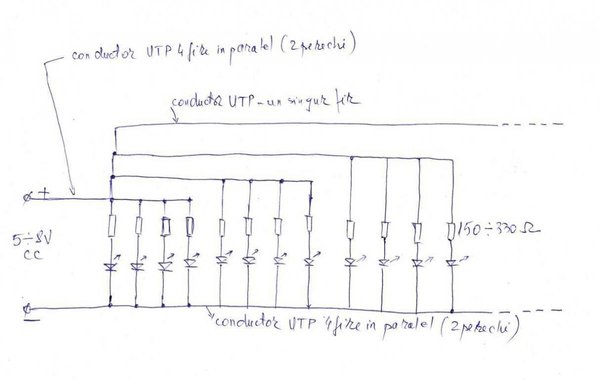 conductor UTP 4 fire in paralel (2 perechi)
conductor UTP - un singur fir
+
5÷8V
CC
150÷330Ω
-
conductor UTP 4 fire in paralel (2 perechi)